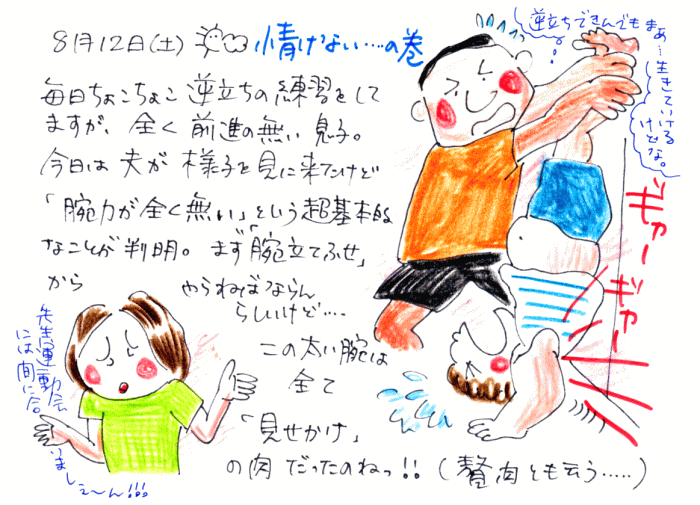 8月12日(土)
情けない…の巻
毎日ちょこちょこ逆立ちの練習をして
ますが、全く前進の無い息子。
今日は夫が様子を見に来てたけど
「腕力が全く無い」という超基本的
なことが判明。まず「腕立てふせ」
から やらねばならん
らしいけど….
この太い腕は
全て
「見せかけ」
の肉だったのねっ!!(贅肉とも云う…..)
逆立ちできんでもまぁ…
生きていける
けどな。
ギャー
ギャー
先生運動会
には間に合
いましぇ〜ん!!!